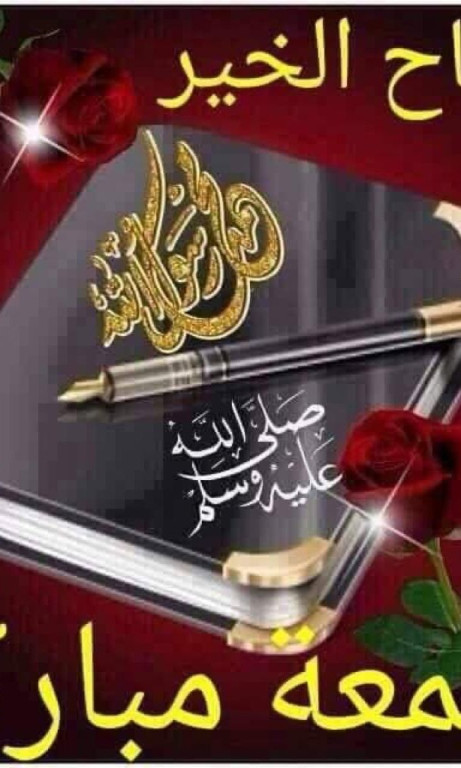 اح الخير
رسول الله
صَلَّى اللَّه
عَلَيْهِ وَسَلَّم
معة مبار